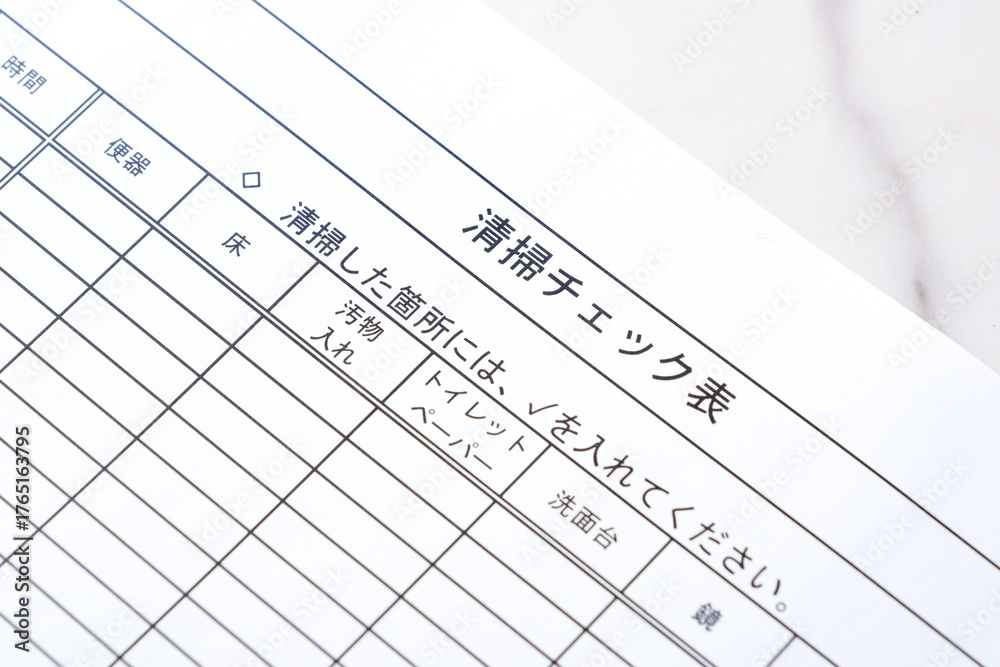 清掃チェック表
◇ 清掃した箇所には、✓を入れてください。
時間
便器
床
汚物
入れ
トイレット
ペーパー
洗面台
鏡
Adobe Stock | #1765163795